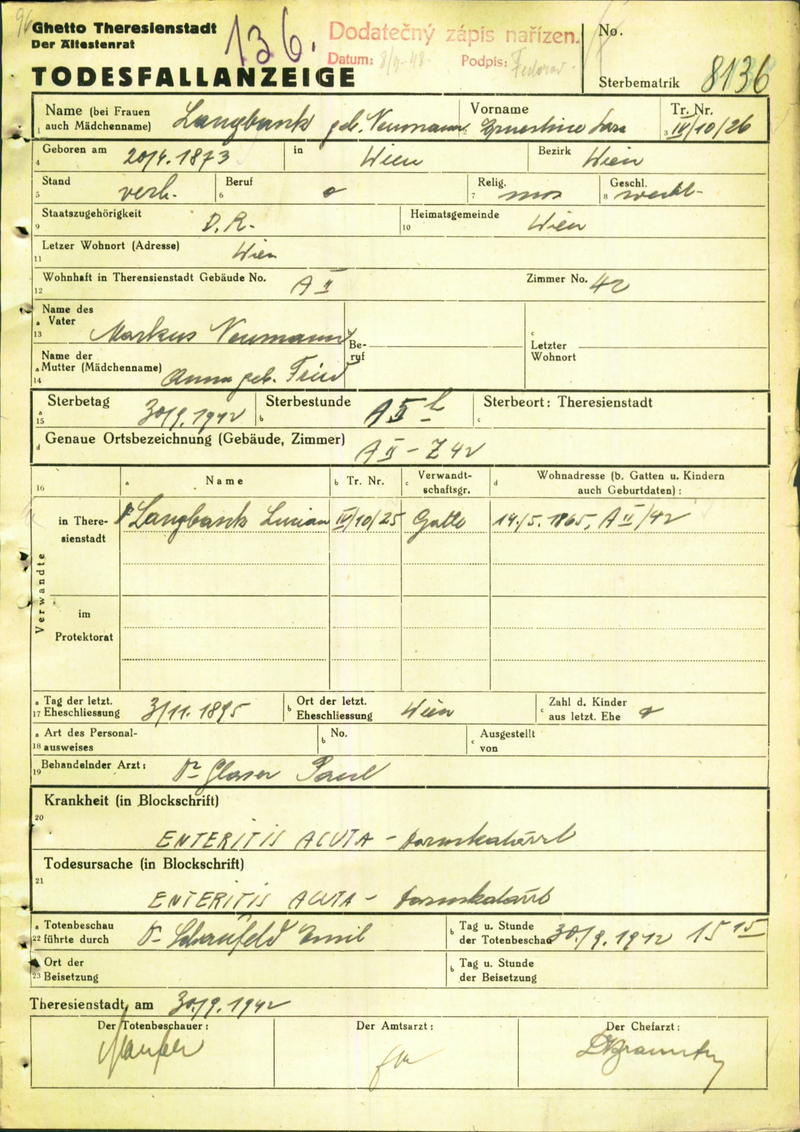 Ghetto Theresienstadt
Der Ältestenrat
136.
Dodatečný zápis nařízen.
Datum: 8/9-48- Podpis:
TODESFALLANZEIGE
No.
Sterbematrik 8136
1 Name (bei Frauen auch Mädchenname) Langbank geb. Neumann
2 Vorname Ernestine Sara
3 Tr. Nr. IV/10/26
4 Geboren am 20/4. 1873 in Wien Bezirk Wien
5 Stand verh. 6 Beruf o 7 Relig. mos 8 Geschl. weibl-
9 Staatszugehörigkeit D.R.- 10 Heimatsgemeinde Wien
11 Letzer Wohnort (Adresse) Wien
12 Wohnhaft in Theresienstadt Gebäude No. A II Zimmer No. 42
13 a Name des Vater Markus Neumann
14 a Name der Mutter (Mädchenname) Anna geb. Fried
b Beruf
c Letzter Wohnort
15 a Sterbetag 30/9. 1942 b Sterbestunde c Sterbeort: Theresienstadt
d Genaue Ortsbezeichnung (Gebäude, Zimmer) A II - Z 42
16 a Name b Tr. Nr. c Verwandtschaftsgr. d Wohnadresse (b. Gatten u. Kindern auch Geburtdaten):
Verwandte
in Theresienstadt Langbank Lucian IV/10/25 Gatte 14./5. 1865, A II/42
im Protektorat
17 a Tag der letzt. Eheschliessung 3/11. 1895 b Ort der letzt. Eheschliessung Wien c Zahl d. Kinder aus letzt. Ehe o
18 a Art des Personalausweises b No. c Ausgestellt von
19 Behandelnder Arzt: Dr Glaser Paul
20 Krankheit (in Blockschrift)
ENTERITIS ACUTA - Darmkatarrh
21 Todesursache (in Blockschrift)
ENTERITIS ACUTA - Darmkatarrh
22 a Totenbeschau führte durch Dr Emil b Tag u. Stunde der Totenbeschau 30./9. 1942 15 15
23 a Ort der Beisetzung b Tag u. Stunde der Beisetzung
Theresienstadt, am 30./9. 1942
Der Totenbeschauer: Der Amtsarzt: Der Chefarzt: